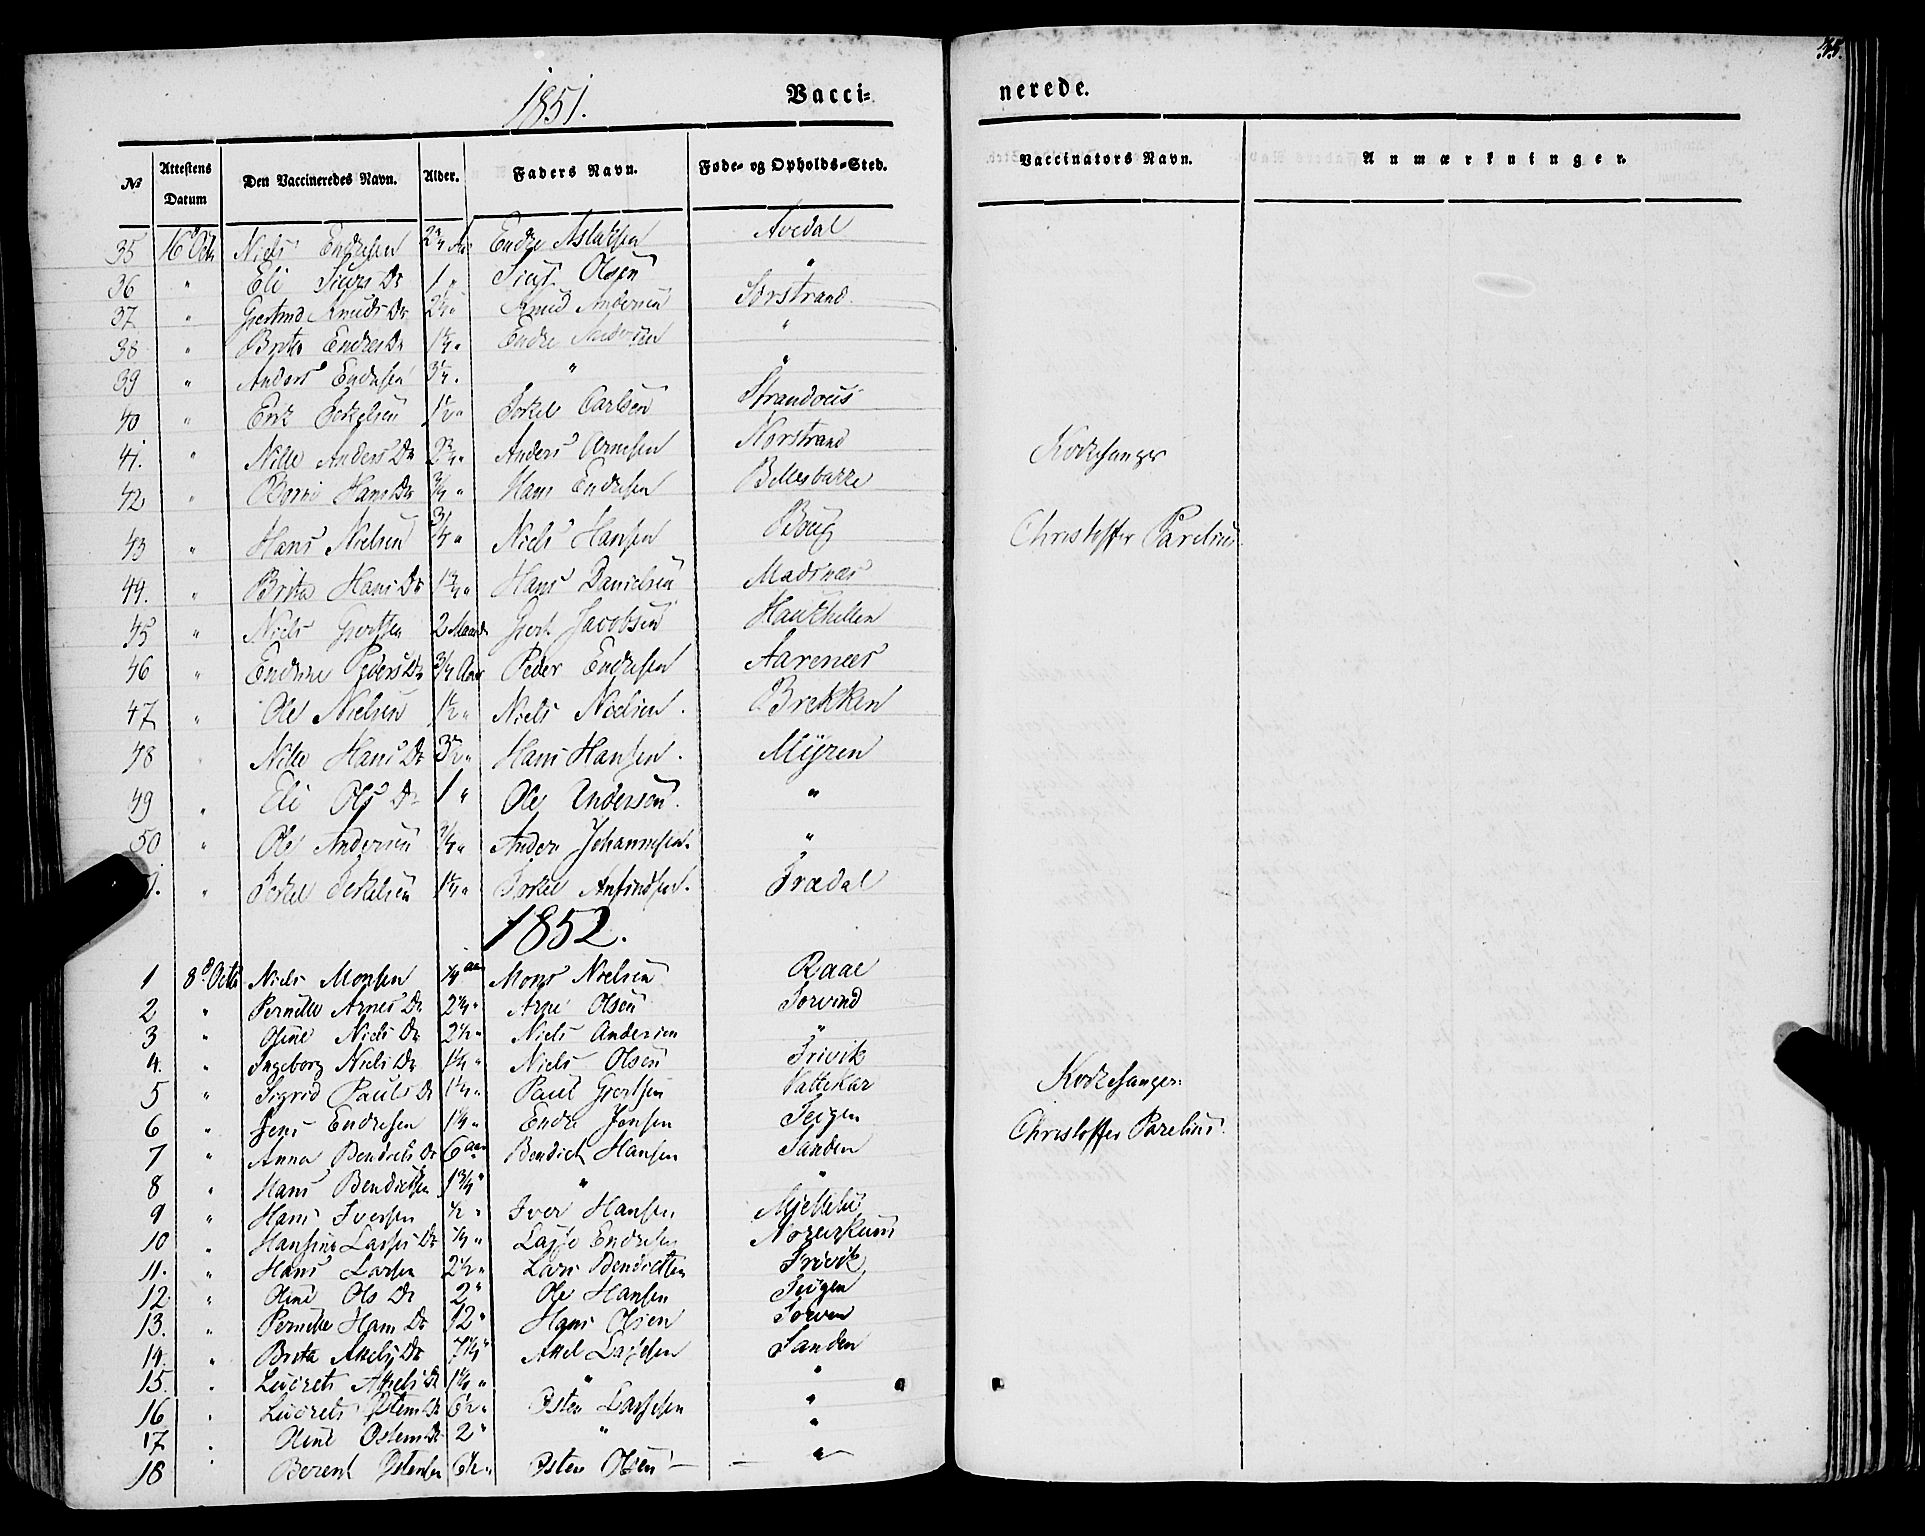 1851.
Vacci-
nerede.
45.
№ Attestens Datum Den Vaccineredes Navn. Alder. Faders Navn. Føde- og Opholds-Sted. Vaccinators Navn. Anmærkninger.
35 16d Octr Niels Endresen 2 3/4 Aar Endre Aslaksen Avedal
36 " Eli Siurs Dr 1 " Siur Olsen "
37 " Gjertrud Knuds Dr " Knud Andersen Sørstrand
38 " Brita Endres Dr " Endre Andersen "
39 " Anders Endresen " " "
40 " Erik Torkelsen 1 1/2 " Torkel Carlsen Strandvus
41. " Nille Anders Dr " Anders Arnesen Norstrand Kirkesanger
42 " Børni Hans Dr 3/4 " Hans Endresen Bellesbakke
43 " Hans Nielsen 3/4 " Niels Hansen Boug Christoffer Parelius
44. " Brita Hans Dr " Hans Danielsen Madsnæs
45 " Niels Gjertsen 2 Maand Gjert Jacobsen Haukhellen
46 " Endrine Peders Dr 3/4 Aar Peder Endresen Aarenæs
47 " Ole Nielsen 1 1/2 " Niels Nielsen. Brekken
48 " Nille Hans Dr 3 1/2 " Hans Hansen. Myren
49 " Eli Ols Dr 1 " Ole Andersen. "
50 " Ole Andersen 3/4 " Anders Johannesen. "
" Torkel Torkelsen 1 1/4 " Torkel Ansindsen. Trædal
1852.
1 8d Octbr Niels Monsen 1/4 aar Mons Nielsen Raae
2 " Pernille Arnes Dr 2 1/4 " Arne Olsen Torvind
3 " Oline Niels Dr 2 1/2 " Niels Andersen "
4. " Ingeborg Niels Dr 1 1/4 " Niels Olsen Trivik
5 " Sigrid Pauls Dr 1 1/4 " Paul Gjertsen Vattekar Kirkesanger
6 " Jens Endresen 1 1/4 " Endre Jensen Teigen Christoffer Parelius.
7 " Anna Bendicts Dr 6 aar Bendict Hansen Sanden
8 " Hans Bendictsen 1 3/4 " " "
9 " Hans Iversen 1/2 " Iver Hansen Mjellelii
10 " Hansine Lasses Dr 1/4 " Lasse Endresen
11. " Hans Larsen 2 1/2 " Lars Bendictsen Trivik
12 " Oline Ols Dr 2 " Ole Hansen Teigen
13. " Pernille Hans Dr 12 " Hans Olsen Torven
14. " Brita Axels Dr 7 1/4 " Axel Lassesen Sanden
15. " Lucrets Axels Dr " " "
16 " Lucrets Østens Dr 6 1/2 " Østen Lassesen "
17 " Oline Østens Dr 2 " " "
18 " Berent Østensen 6 1/2 " Østen Olsen "